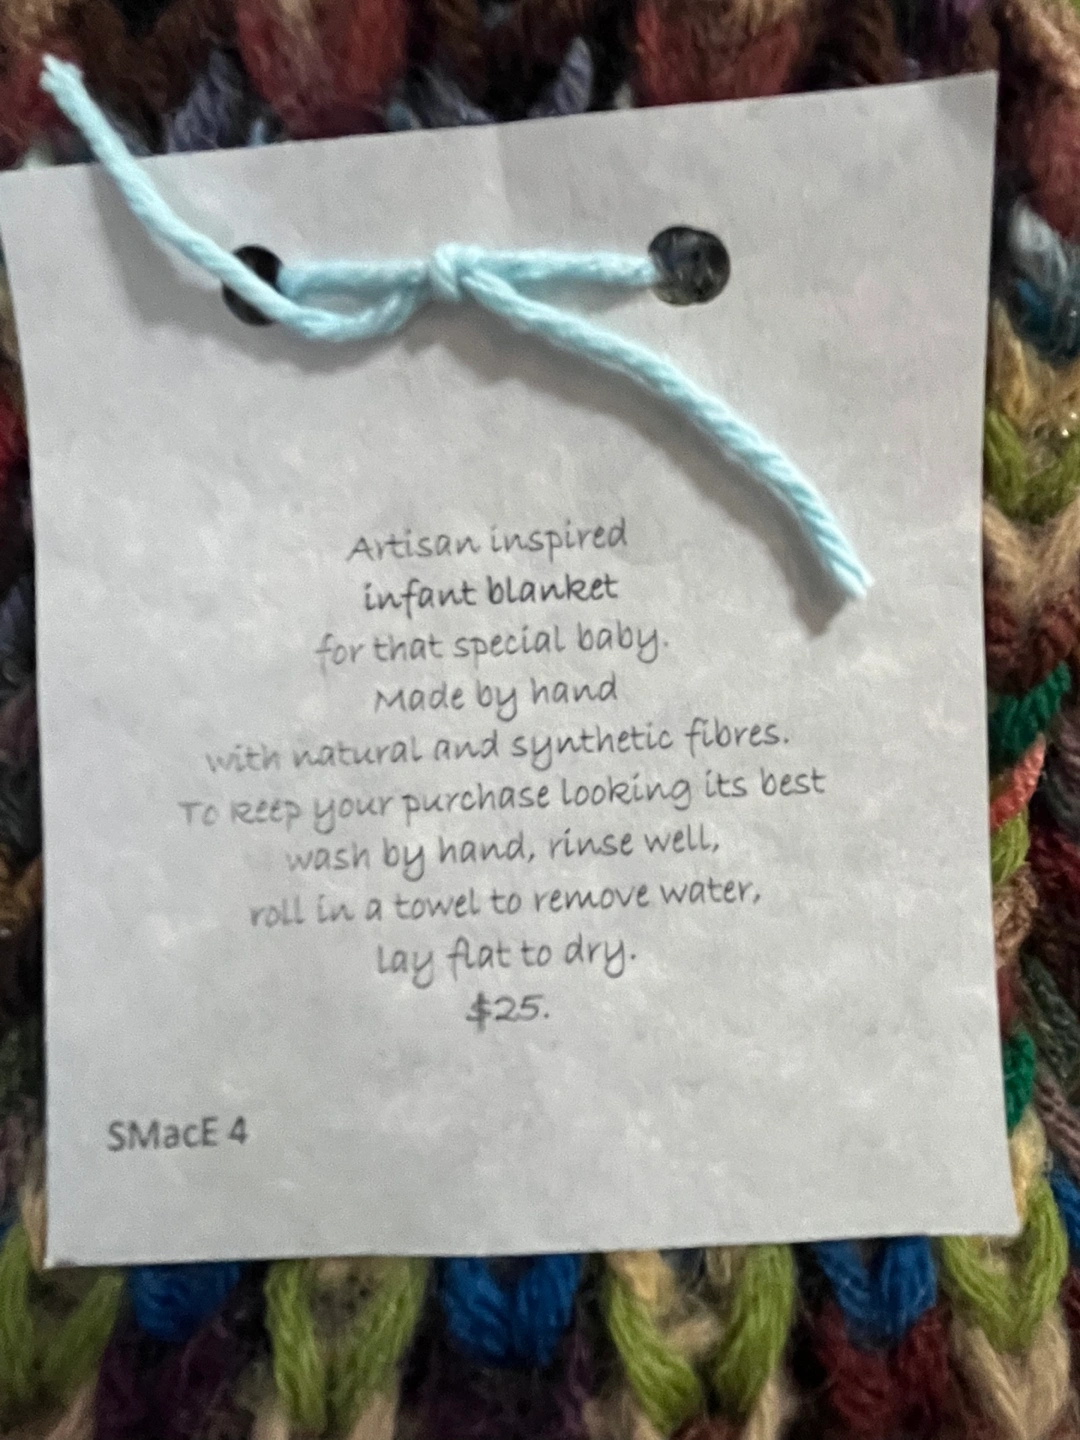 Artisan inspired
infant blanket
for that special baby.
Made by hand
with natural and synthetic fibres.
To keep your purchase looking its best
wash by hand, rinse well,
roll in a towel to remove water,
Lay flat to dry.
$25.
SMacE 4